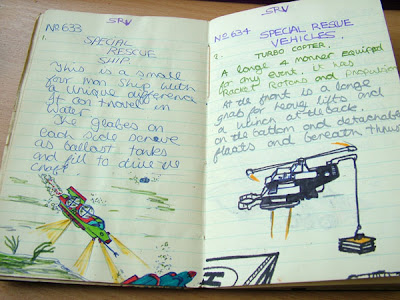 SRV
No 633
1.
SPECIAL
RESCUE
SHIP.
This is a small
four man ship with
a unique difference
it can travel in
water.
The globes on
each side serve
as ballast tanks
and fill to dive the
craft.
SRV
No 634
SPECIAL RESUE
VEHICLES.
2.
TURBO COPTER.
A large 4 manner equiped
for any event. it has
Rocket Rotors and propulsion
At the front is a large
grab for heavy lifts and
a winch at the back.
on the bottom and detachable
floats and beneath